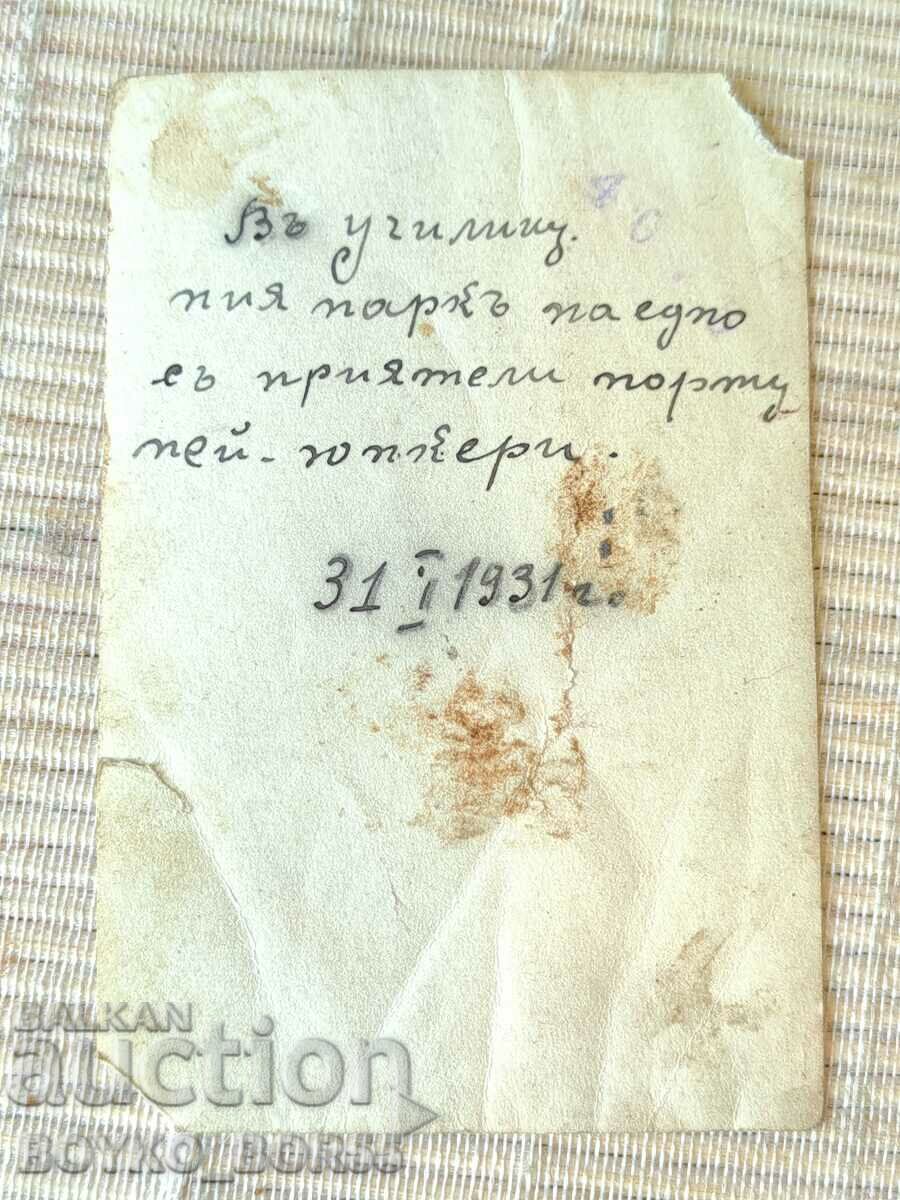 Въ училищ.
ния паркъ наедно
съ приятели порту
пей-юнкери.
31 I 1931 г.
BALKAN
auction
BOYKO_BOR55